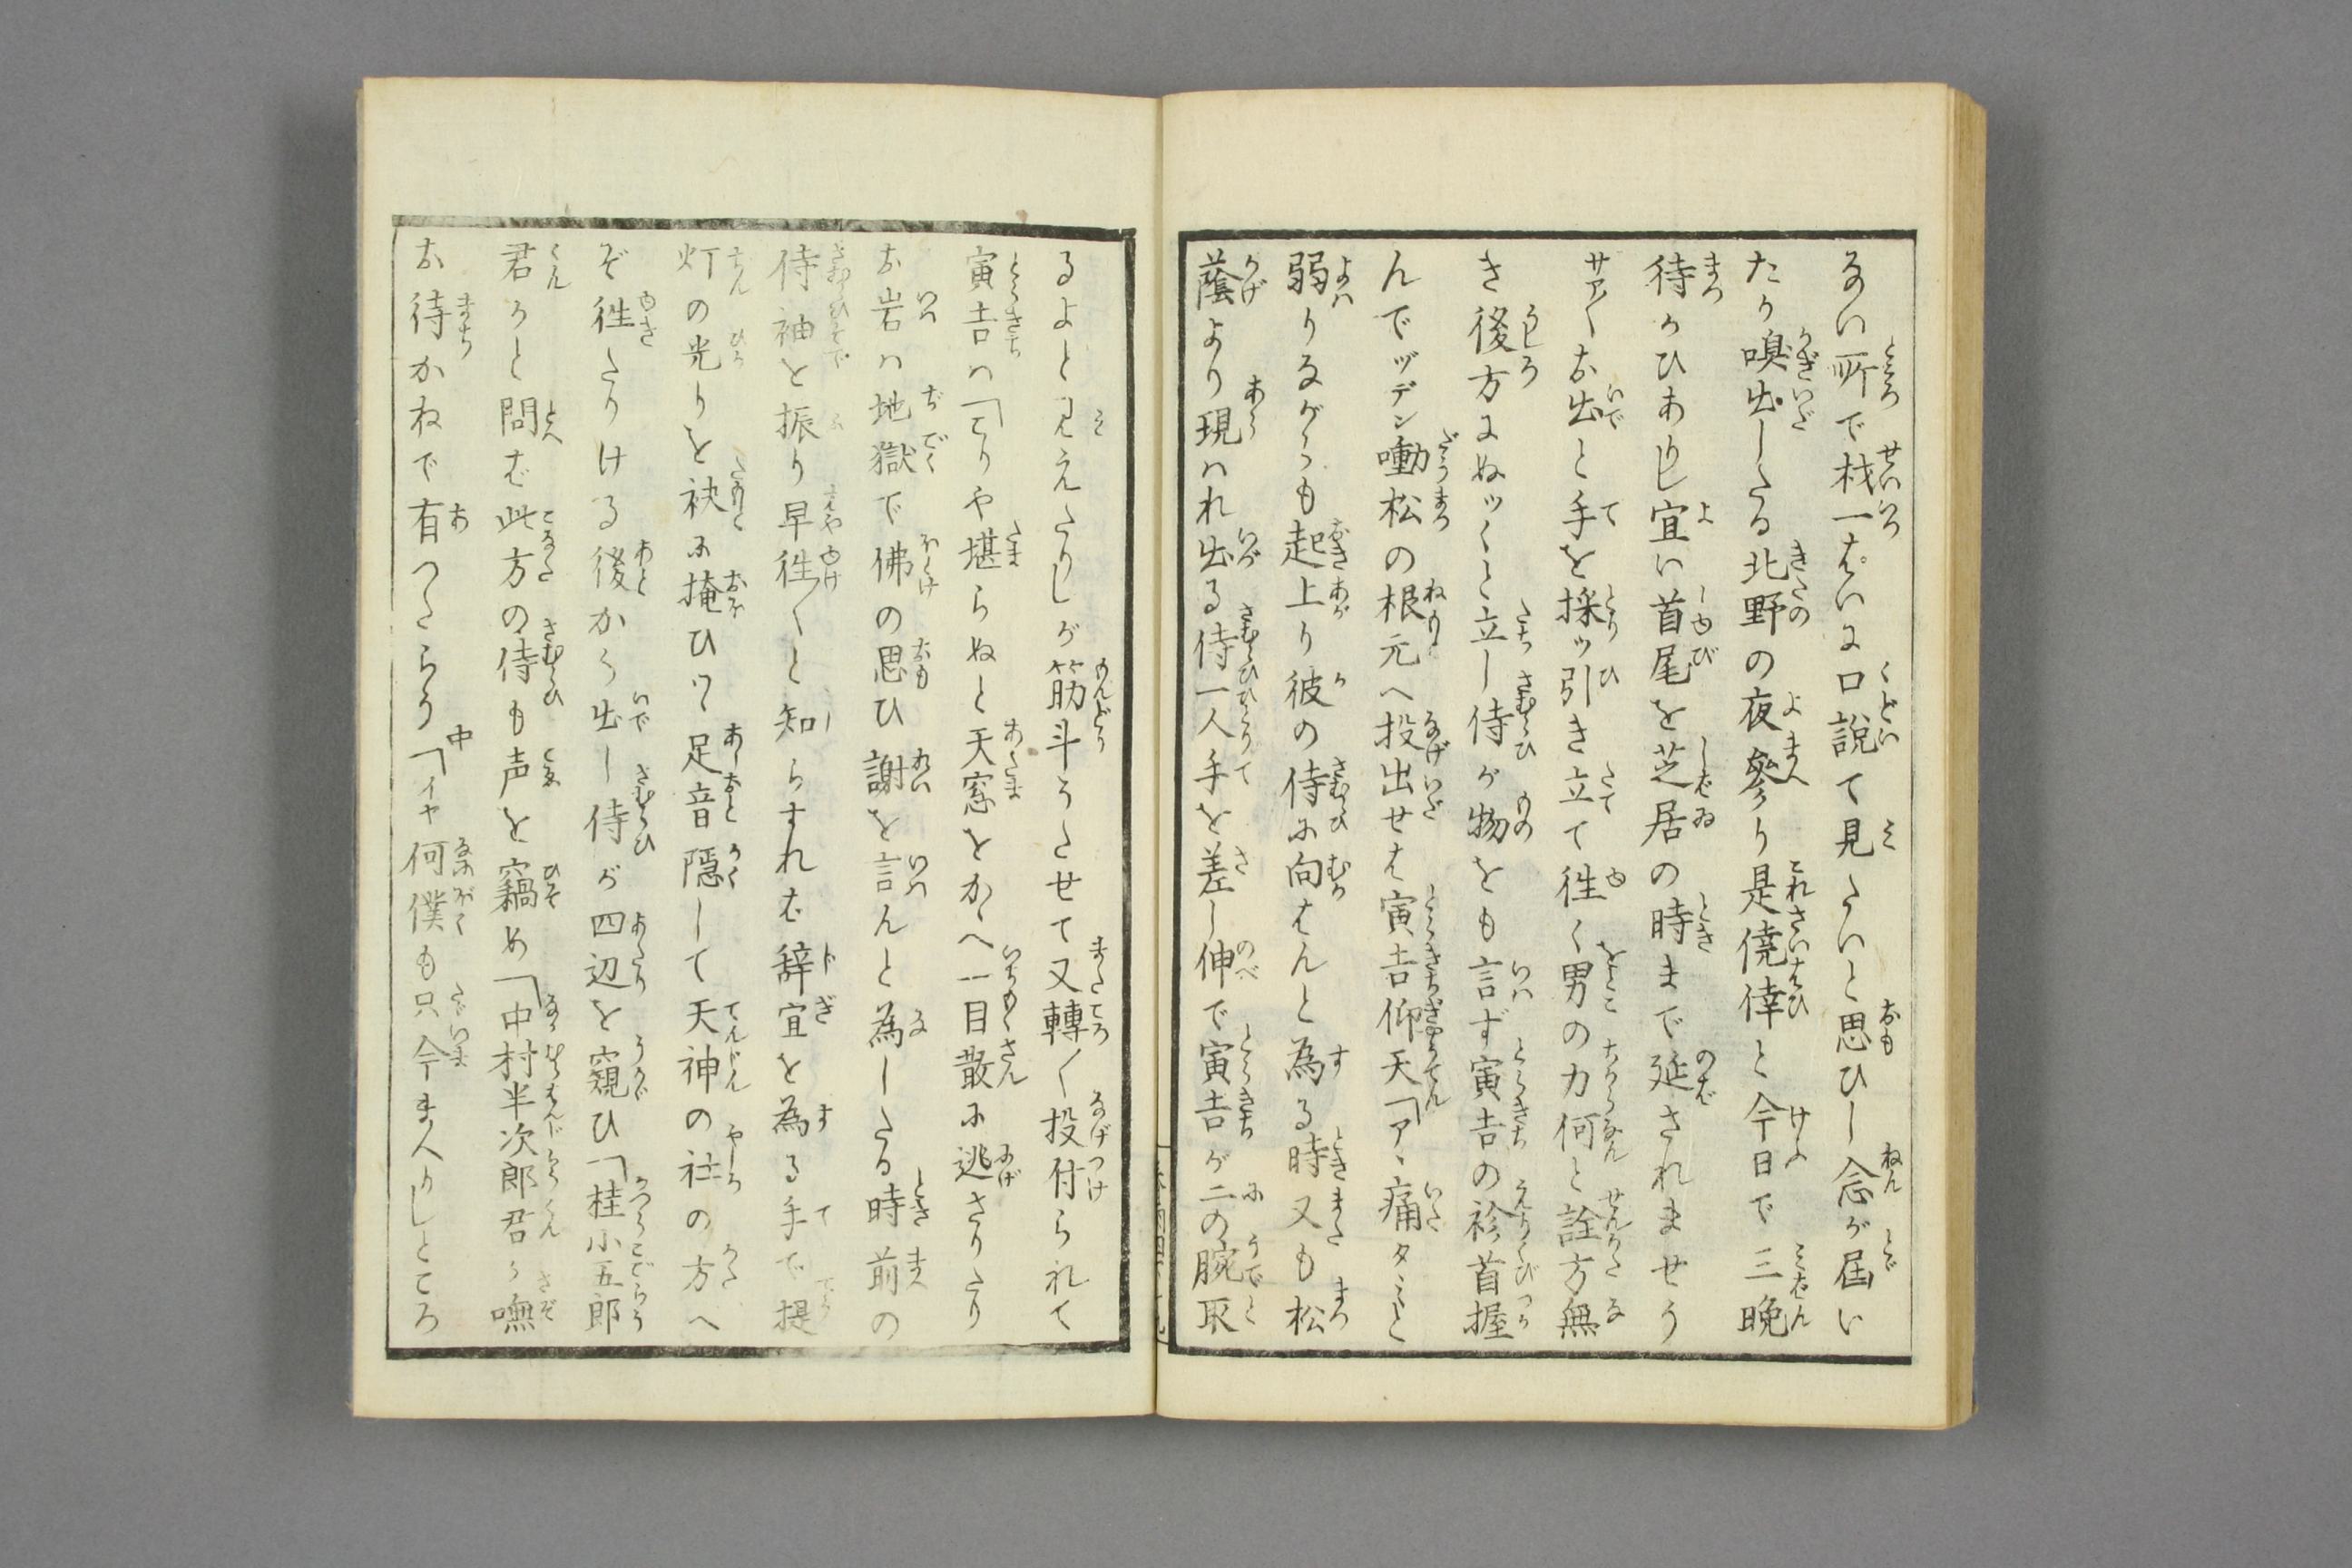 ない所で材一ぱいに口説て見たいと思ひし念が届い
たか嗅出したる北野の夜參り是僥倖と今日で三晩
待かひありし宜い首尾を芝居の時まで延されませう
サア〱お出と手を採ッ引き立て徃く男の力何と詮方無
き後方にぬッくと立し侍が物をも言ず寅吉の衿首握
んでヅデン働松の根元へ投出せば寅吉仰天「アヽ痛タミと
弱りながらも起上り彼の侍に向はんと為る時又も松
蔭より現ハれ出る侍一人手を差し伸べて寅吉が二の腕取
るよと見えたりしが筋斗うたせて又轉〱投付られて
寅吉ハ「こりや堪らぬと天窓をかゝへ一目散に逃さりたり
お岩ハ地獄で佛の思ひ謝を言んと為したる時前の
侍袖を振り早徃〱と知らすれば辞宜を為る手で提
灯の光りを袂に掩ひつゝ足音隠して天神の社の方へ
ぞ徃たりける後から出し侍が四辺を窺ひ「桂小五郎
君かと問ば此方の侍も声を竊め「中村半次郎君か嘸
お待かねで有つたらう 中「イヤ何僕も只今まゐりしところ